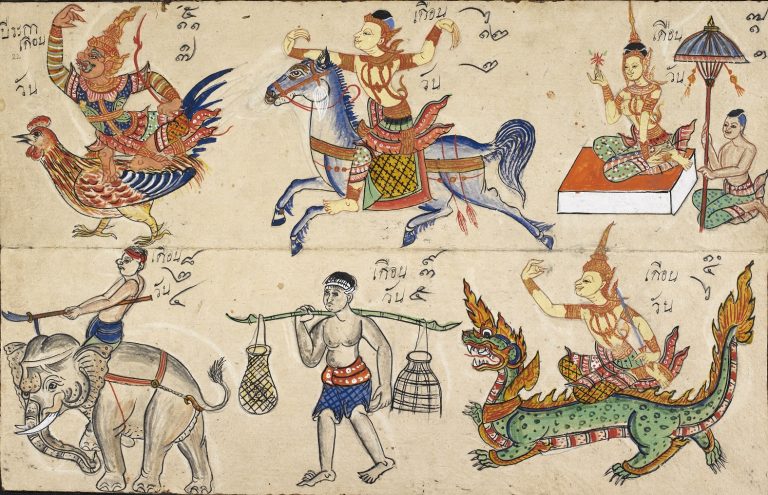 ปีระกา
เดือน
วัน ๗
เดือน ๑๒
วัน ๒
เดือน ๗
วัน
เดือน ๘ ๒
วัน ๔
เดือน ๓
วัน ๕
เดือน
วัน ๖